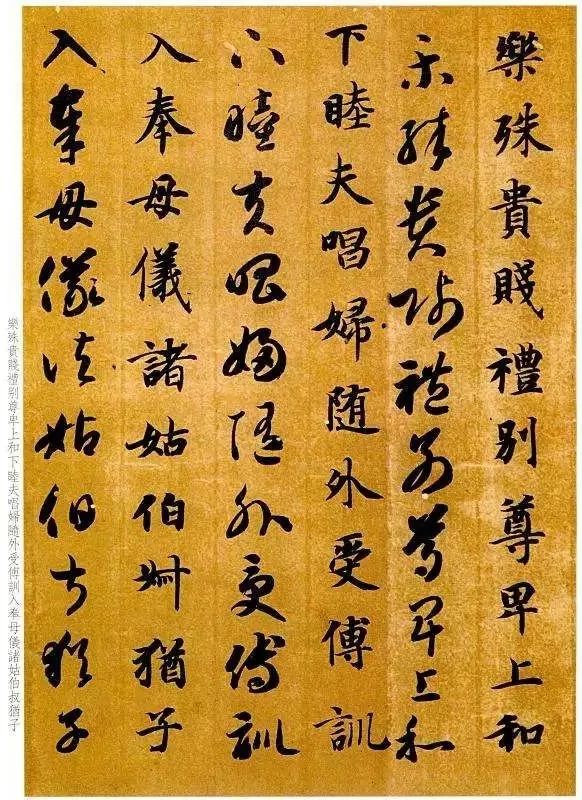 樂殊貴賤禮别尊卑上和
樂殊貴賤禮别尊卑上和
下睦夫唱婦随外受傅訓
下睦夫唱婦随外受傅訓
入奉母儀諸姑伯叔猶子
入奉母儀諸姑伯叔猶子
樂殊貴賤禮别尊卑上和下睦夫唱婦隨外受傅訓入奉母儀諸姑伯叔猶子